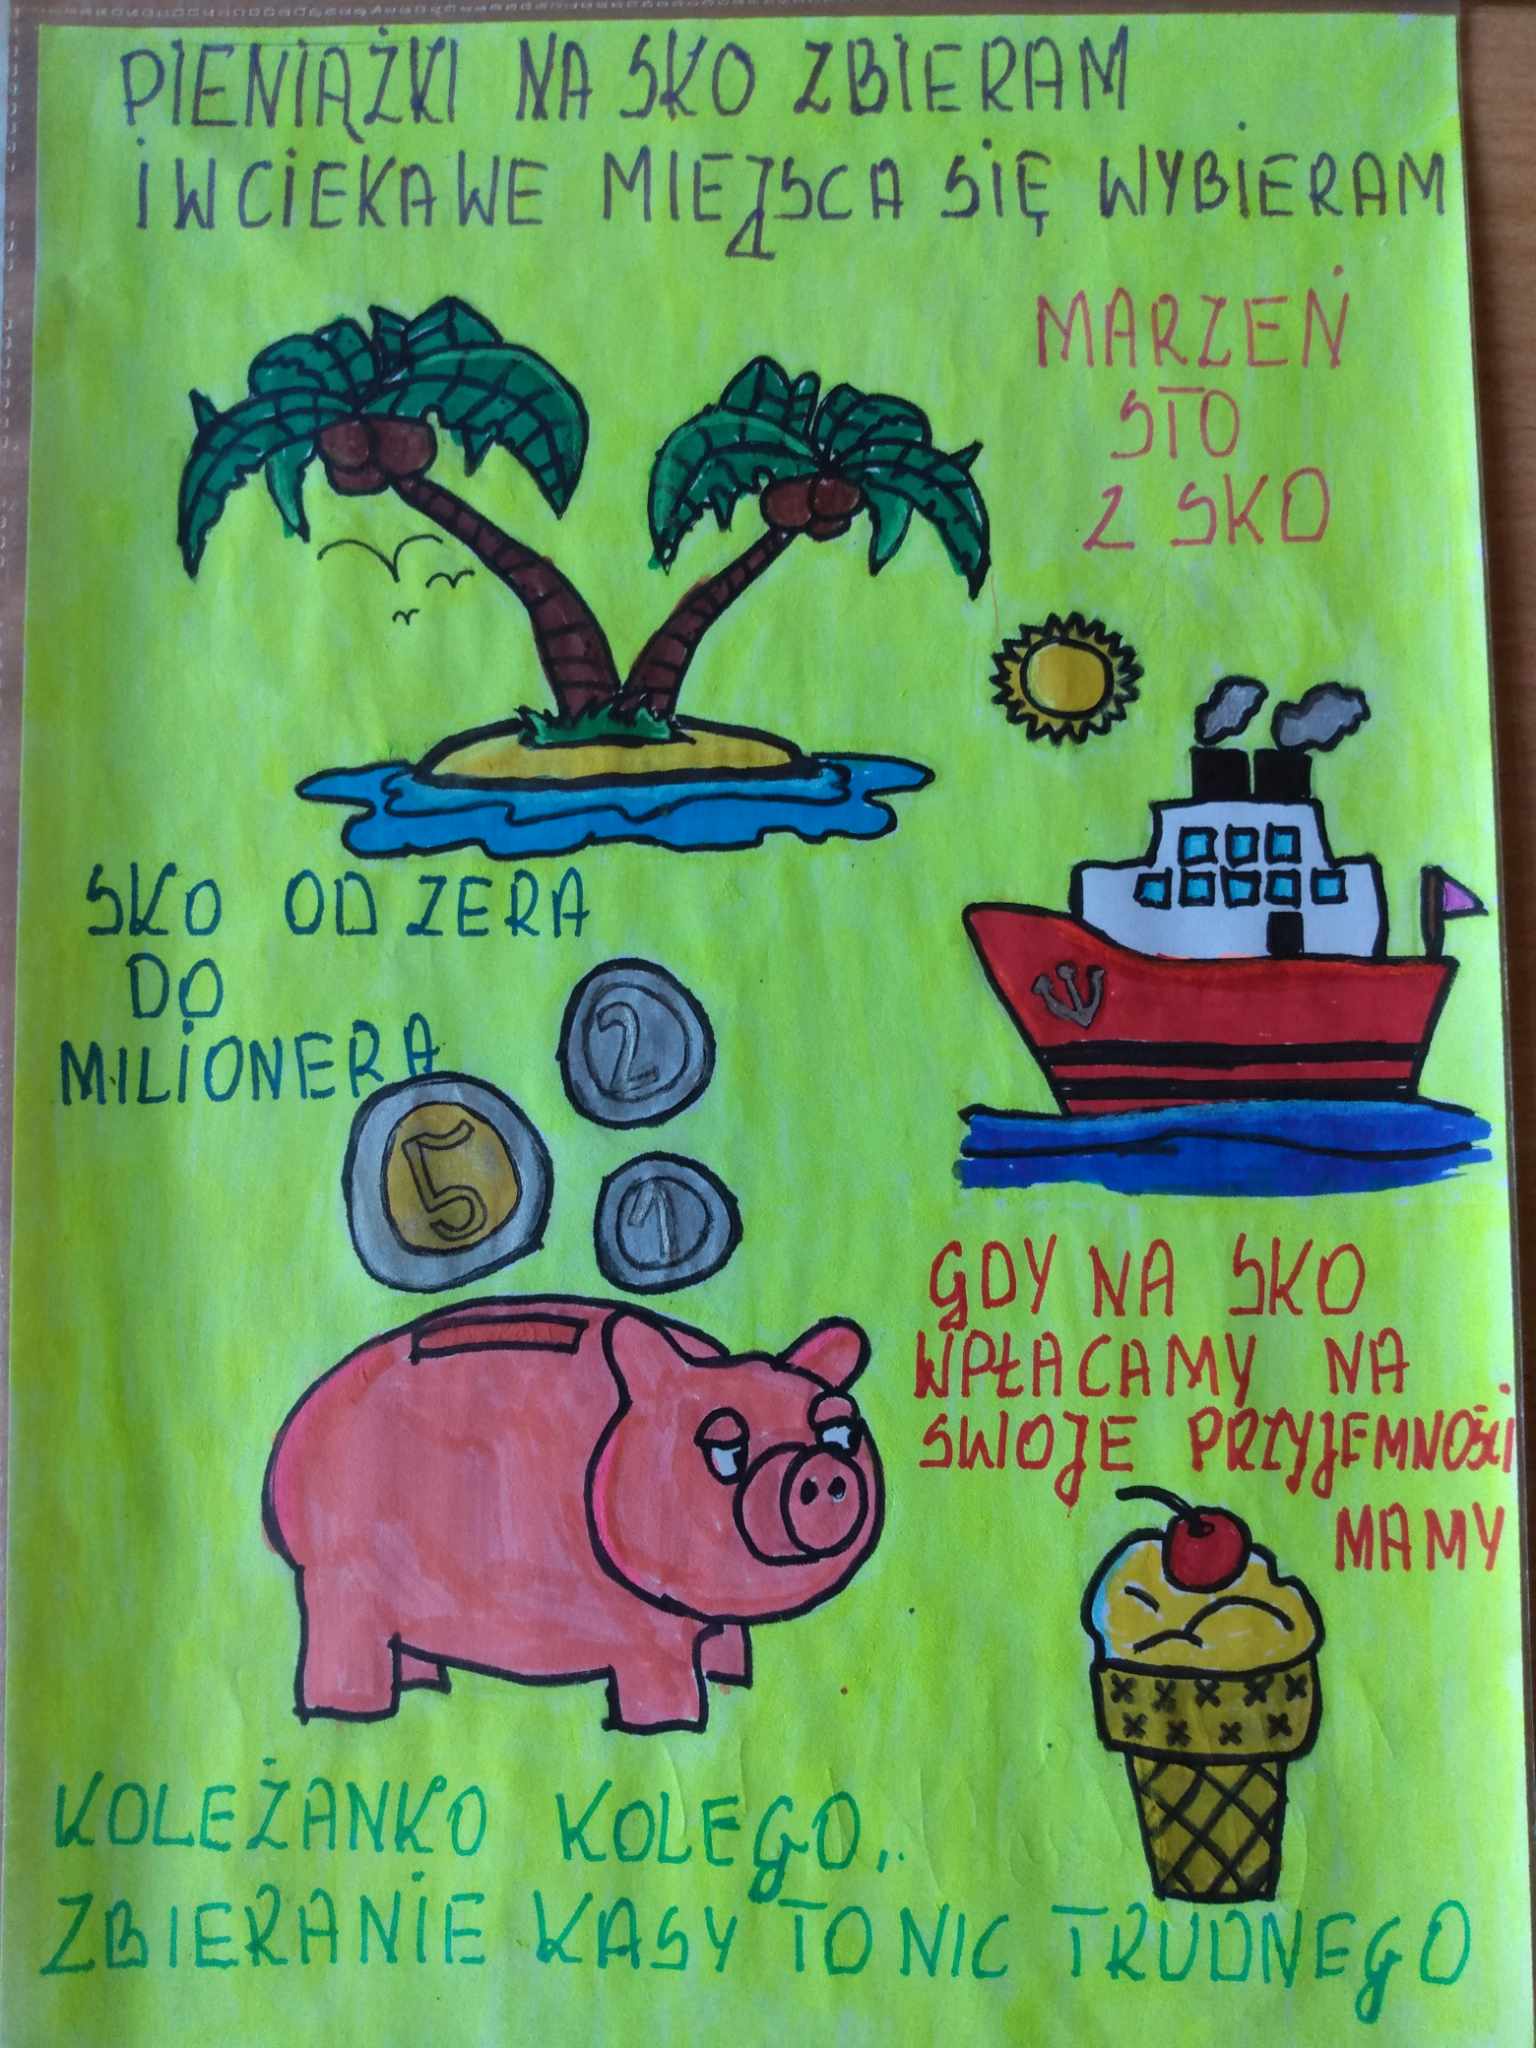 PIENIĄŻKI NA SKO ZBIERAM
I W CIEKAWE MIEJSCA SIĘ WYBIERAM
MARZEŃ
STO
Z SKO
SKO OD ZERA
DO
MILIONERA
2
5
1
GDY NA SKO
WPŁACAMY NA
SWOJE PRZYJEMNOŚCI
MAMY
KOLEŻANKO KOLEGO,
ZBIERANIE KASY TO NIC TRUDNEGO